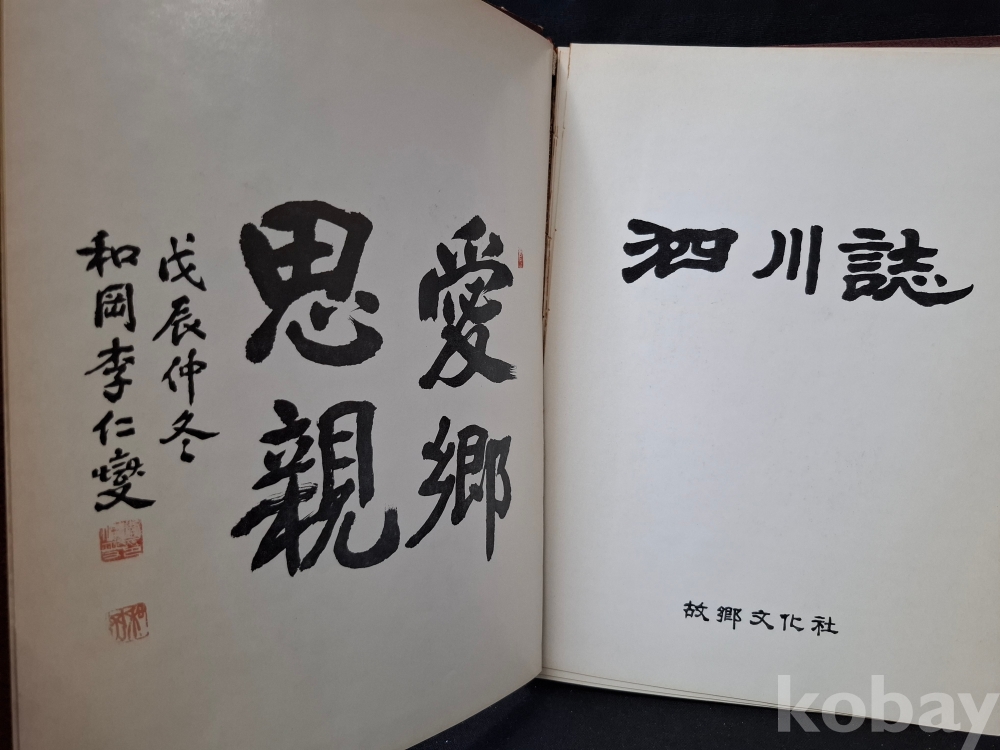 愛鄉
思親
戊辰仲冬
和岡李仁燮
泗川誌
故鄉文化社
kobay